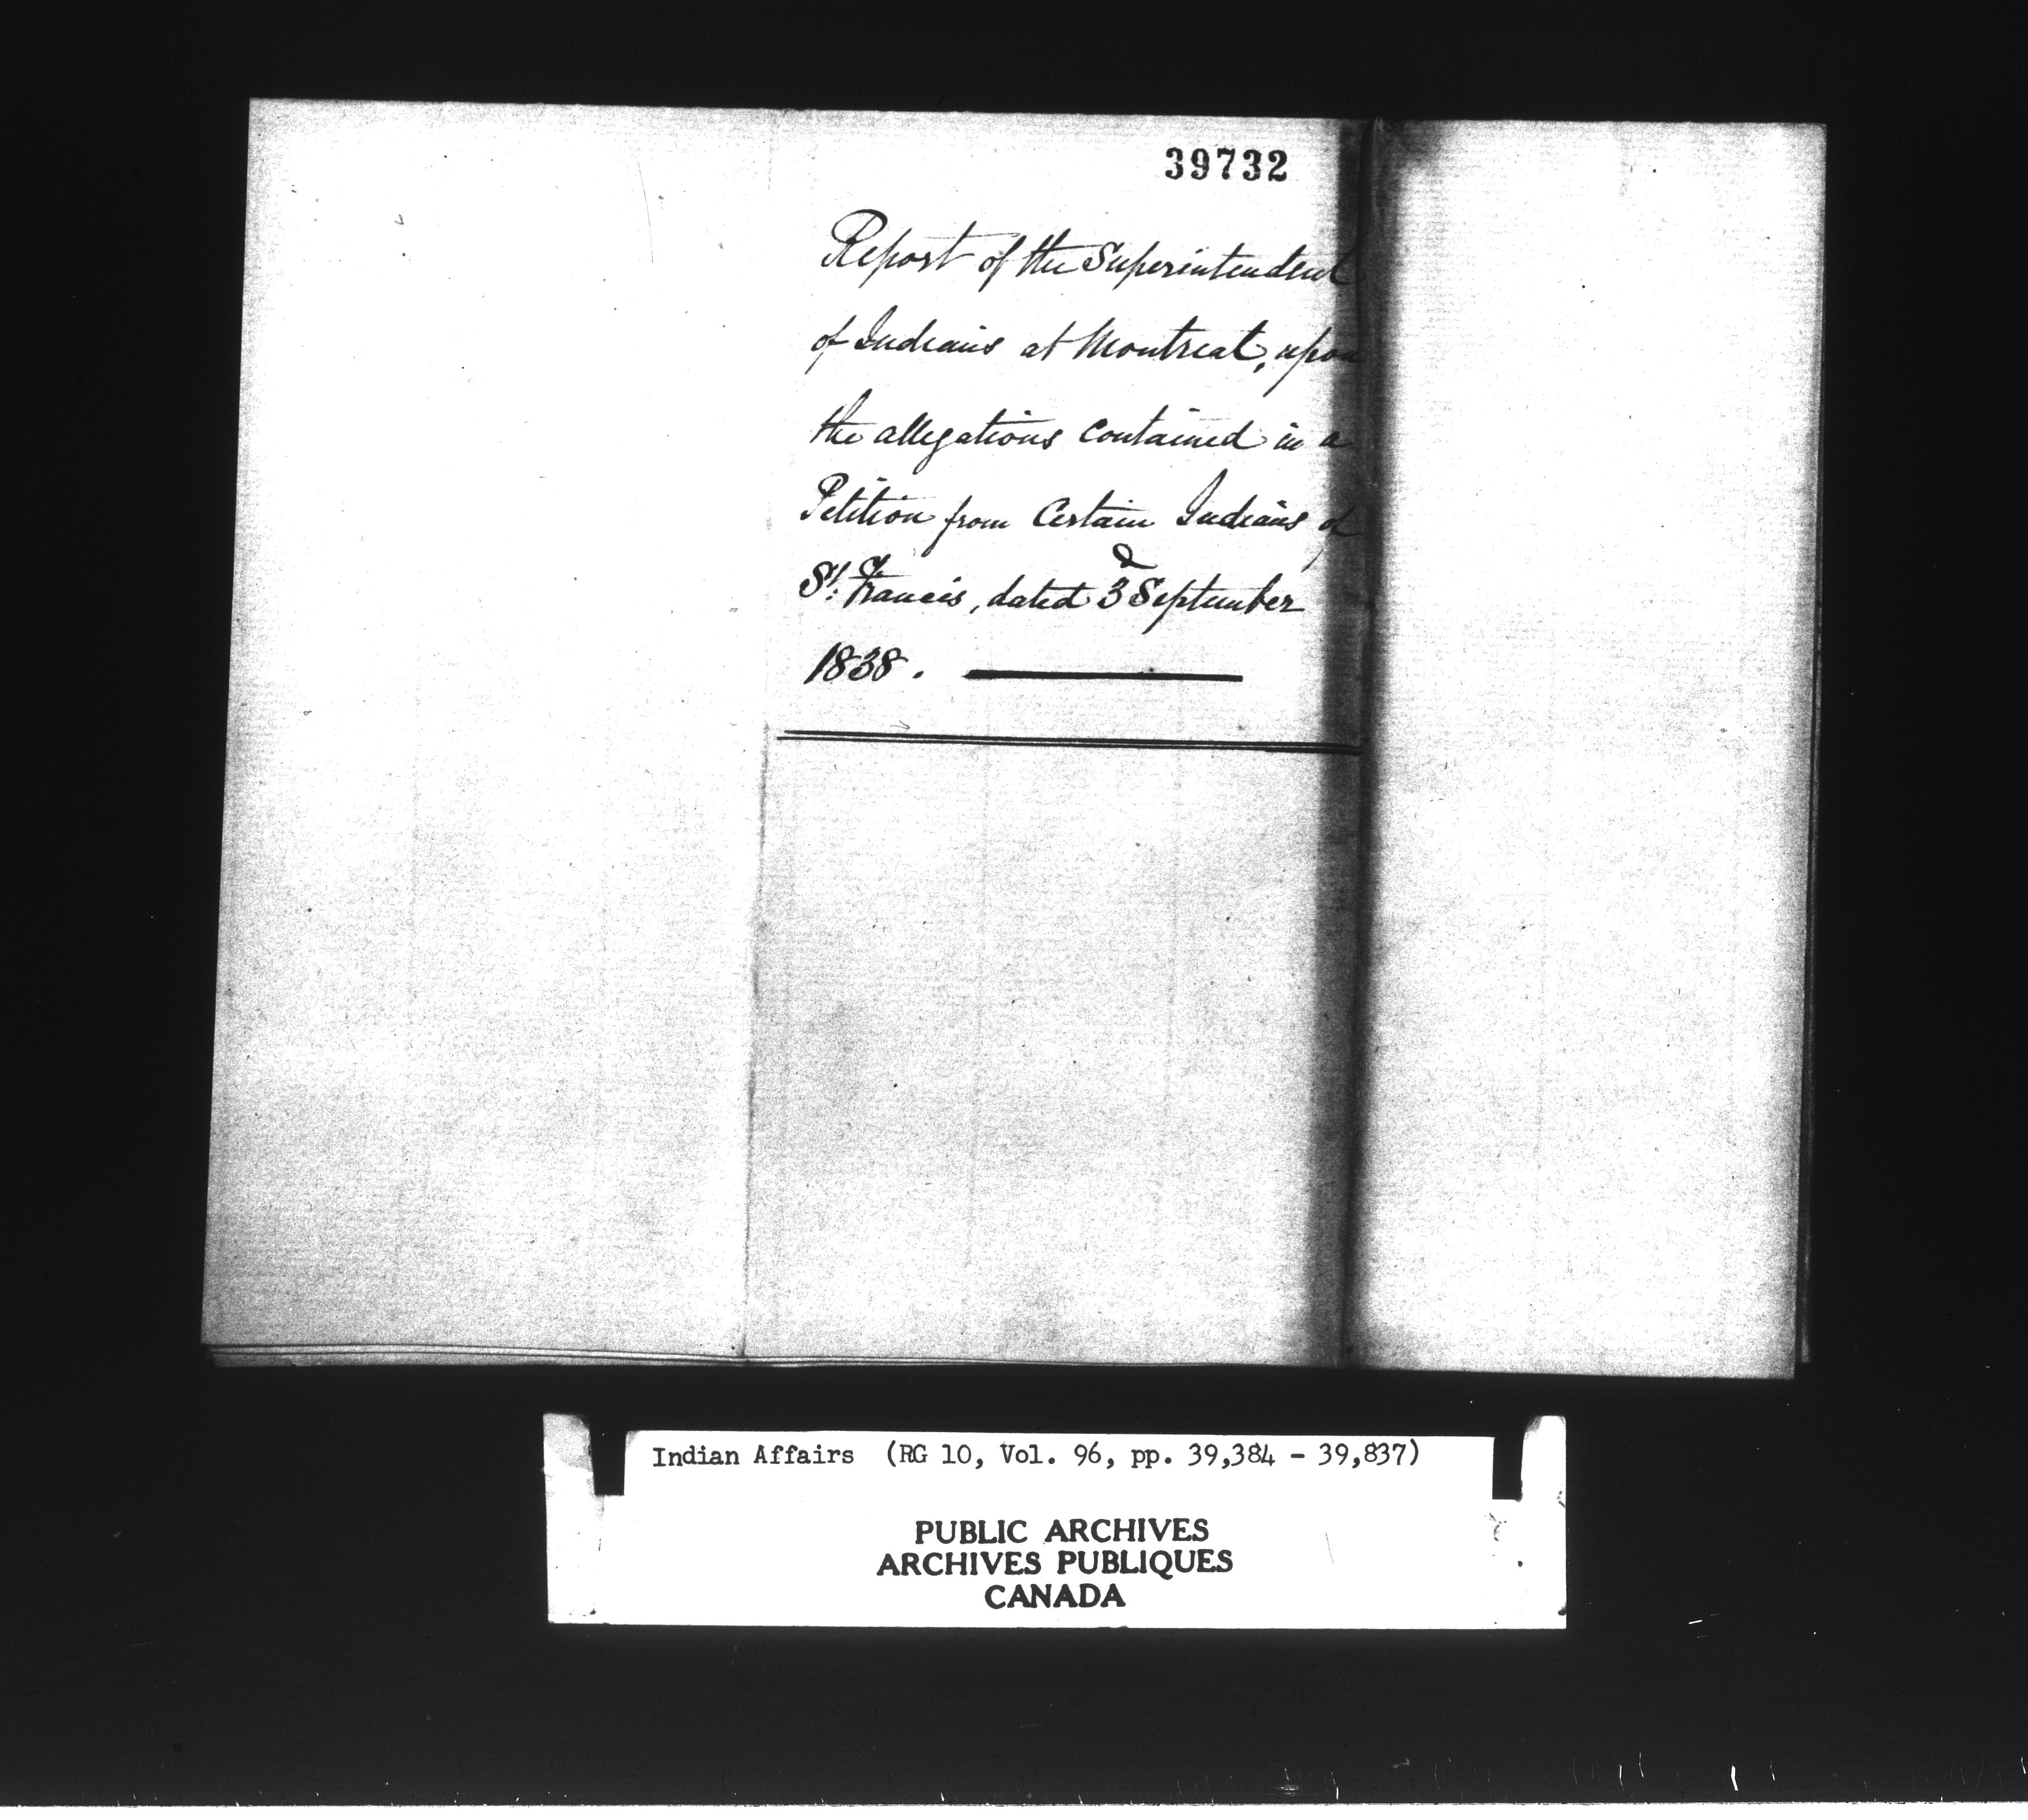 39732
Report of the Superintendent
of Indians at Montreal, upon
the allegations contained in a
Petition from Certain Indians of
St. Francis, dated 3d September
1838.
Indian Affairs (RG 10, Vol. 96, pp. 39,384 - 39,837)
PUBLIC ARCHIVES
ARCHIVES PUBLIQUES
CANADA